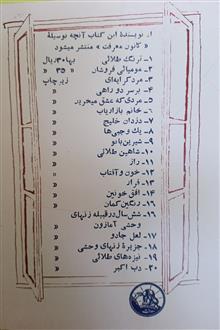 از نویسندهٔ این کتاب آنچه بوسیلهٔ
«کانون معرفت» منتشر میشود
۱- نارنگ طلائی بها ۳۰ ریال
۲- مومیائی فروشان » ۳۵ »
۳- مرد کرایه‌ای زیر چاپ
۴- بر سر دو راهی »
۵- مردی که عشق میخرید »
۶- خانم بازاریاب »
۷- دزدان خلیج »
۸- یک وجبی‌ها »
۹- شیرین بانو »
۱۰- شاهین طلائی »
۱۱- راز »
۱۲- خون و آفتاب »
۱۳- فرار »
۱۴- افق خونین »
۱۵- رنگین کمان »
۱۶- شش سال در قبیله زنهای
وحشی آمازون »
۱۷- لعل جادو »
۱۸- جزیرهٔ زنهای وحشی »
۱۹- نیزه‌های طلائی »
۲۰- دب اکبر »